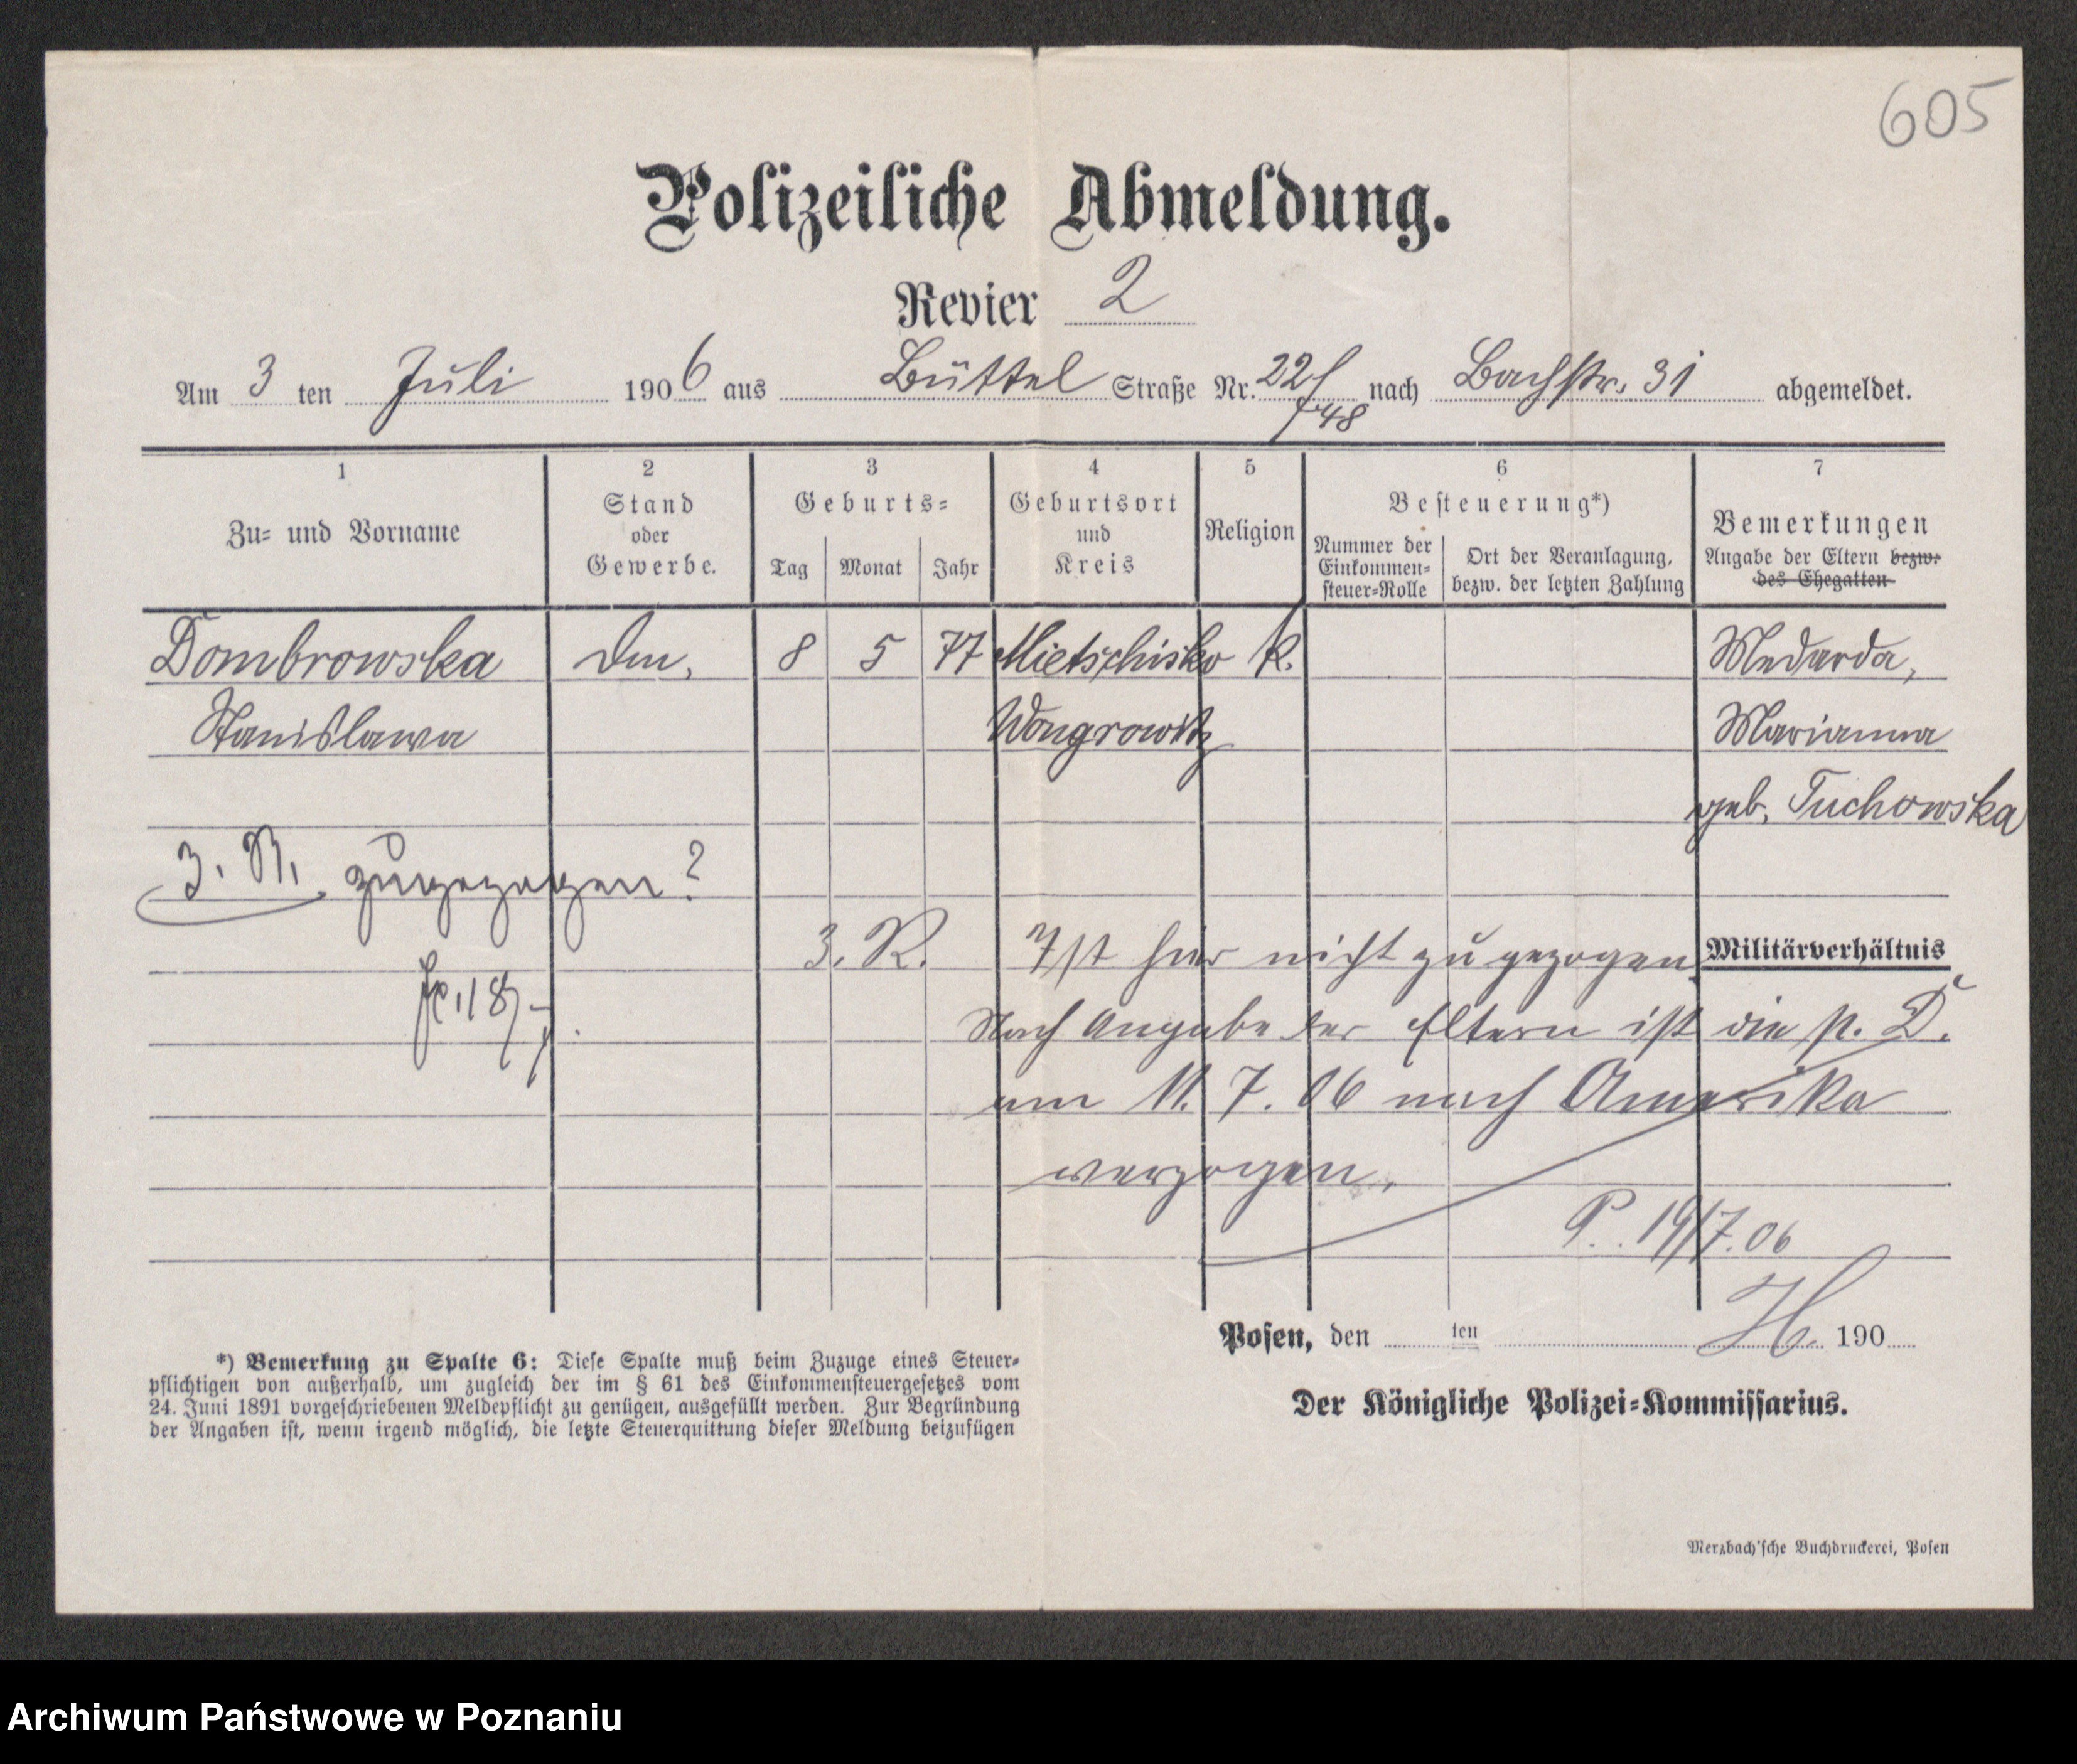 605
Polizeiliche Abmeldung.
Revier 2
Am 3 ten Juli 1906 aus Büttel Straße Nr. 22/ nach Bachstr. 31 abgemeldet.
748
1 2 3 4 5 6 7
Zu= und Vorname Stand oder Gewerbe. Geburts= Tag Monat Jahr Geburtsort und Kreis Religion Besteuerung*) Nummer der Einkommen=steuer=Rolle Ort der Veranlagung, bezw. der letzten Zahlung Bemerkungen Angabe der Eltern bezw. des Ehegatten
Dombrowska 8 5 77 Mietschisko k. Medarda,
Stanislawa Wongrowitz Marianna
geb. Tuchowska
3. R. zugezogen?
3. R. Ist hier nicht zugezogen. Militärverhältnis
Nach Angabe der Eltern ist die p. D.
am 11. 7. 06 nach Amerika
verzogen.
P. 19/7. 06
Posen, den ten 190
Der Königliche Polizei=Kommissarius.
*) Bemerkung zu Spalte 6: Diese Spalte muß beim Zuzuge eines Steuer=
pflichtigen von außerhalb, um zugleich der im § 61 des Einkommensteuergesetzes vom
24. Juni 1891 vorgeschriebenen Meldepflicht zu genügen, ausgefüllt werden. Zur Begründung
der Angaben ist, wenn irgend möglich, die letzte Steuerquittung dieser Meldung beizufügen
Merzbach'sche Buchdruckerei, Posen
Archiwum Państwowe w Poznaniu